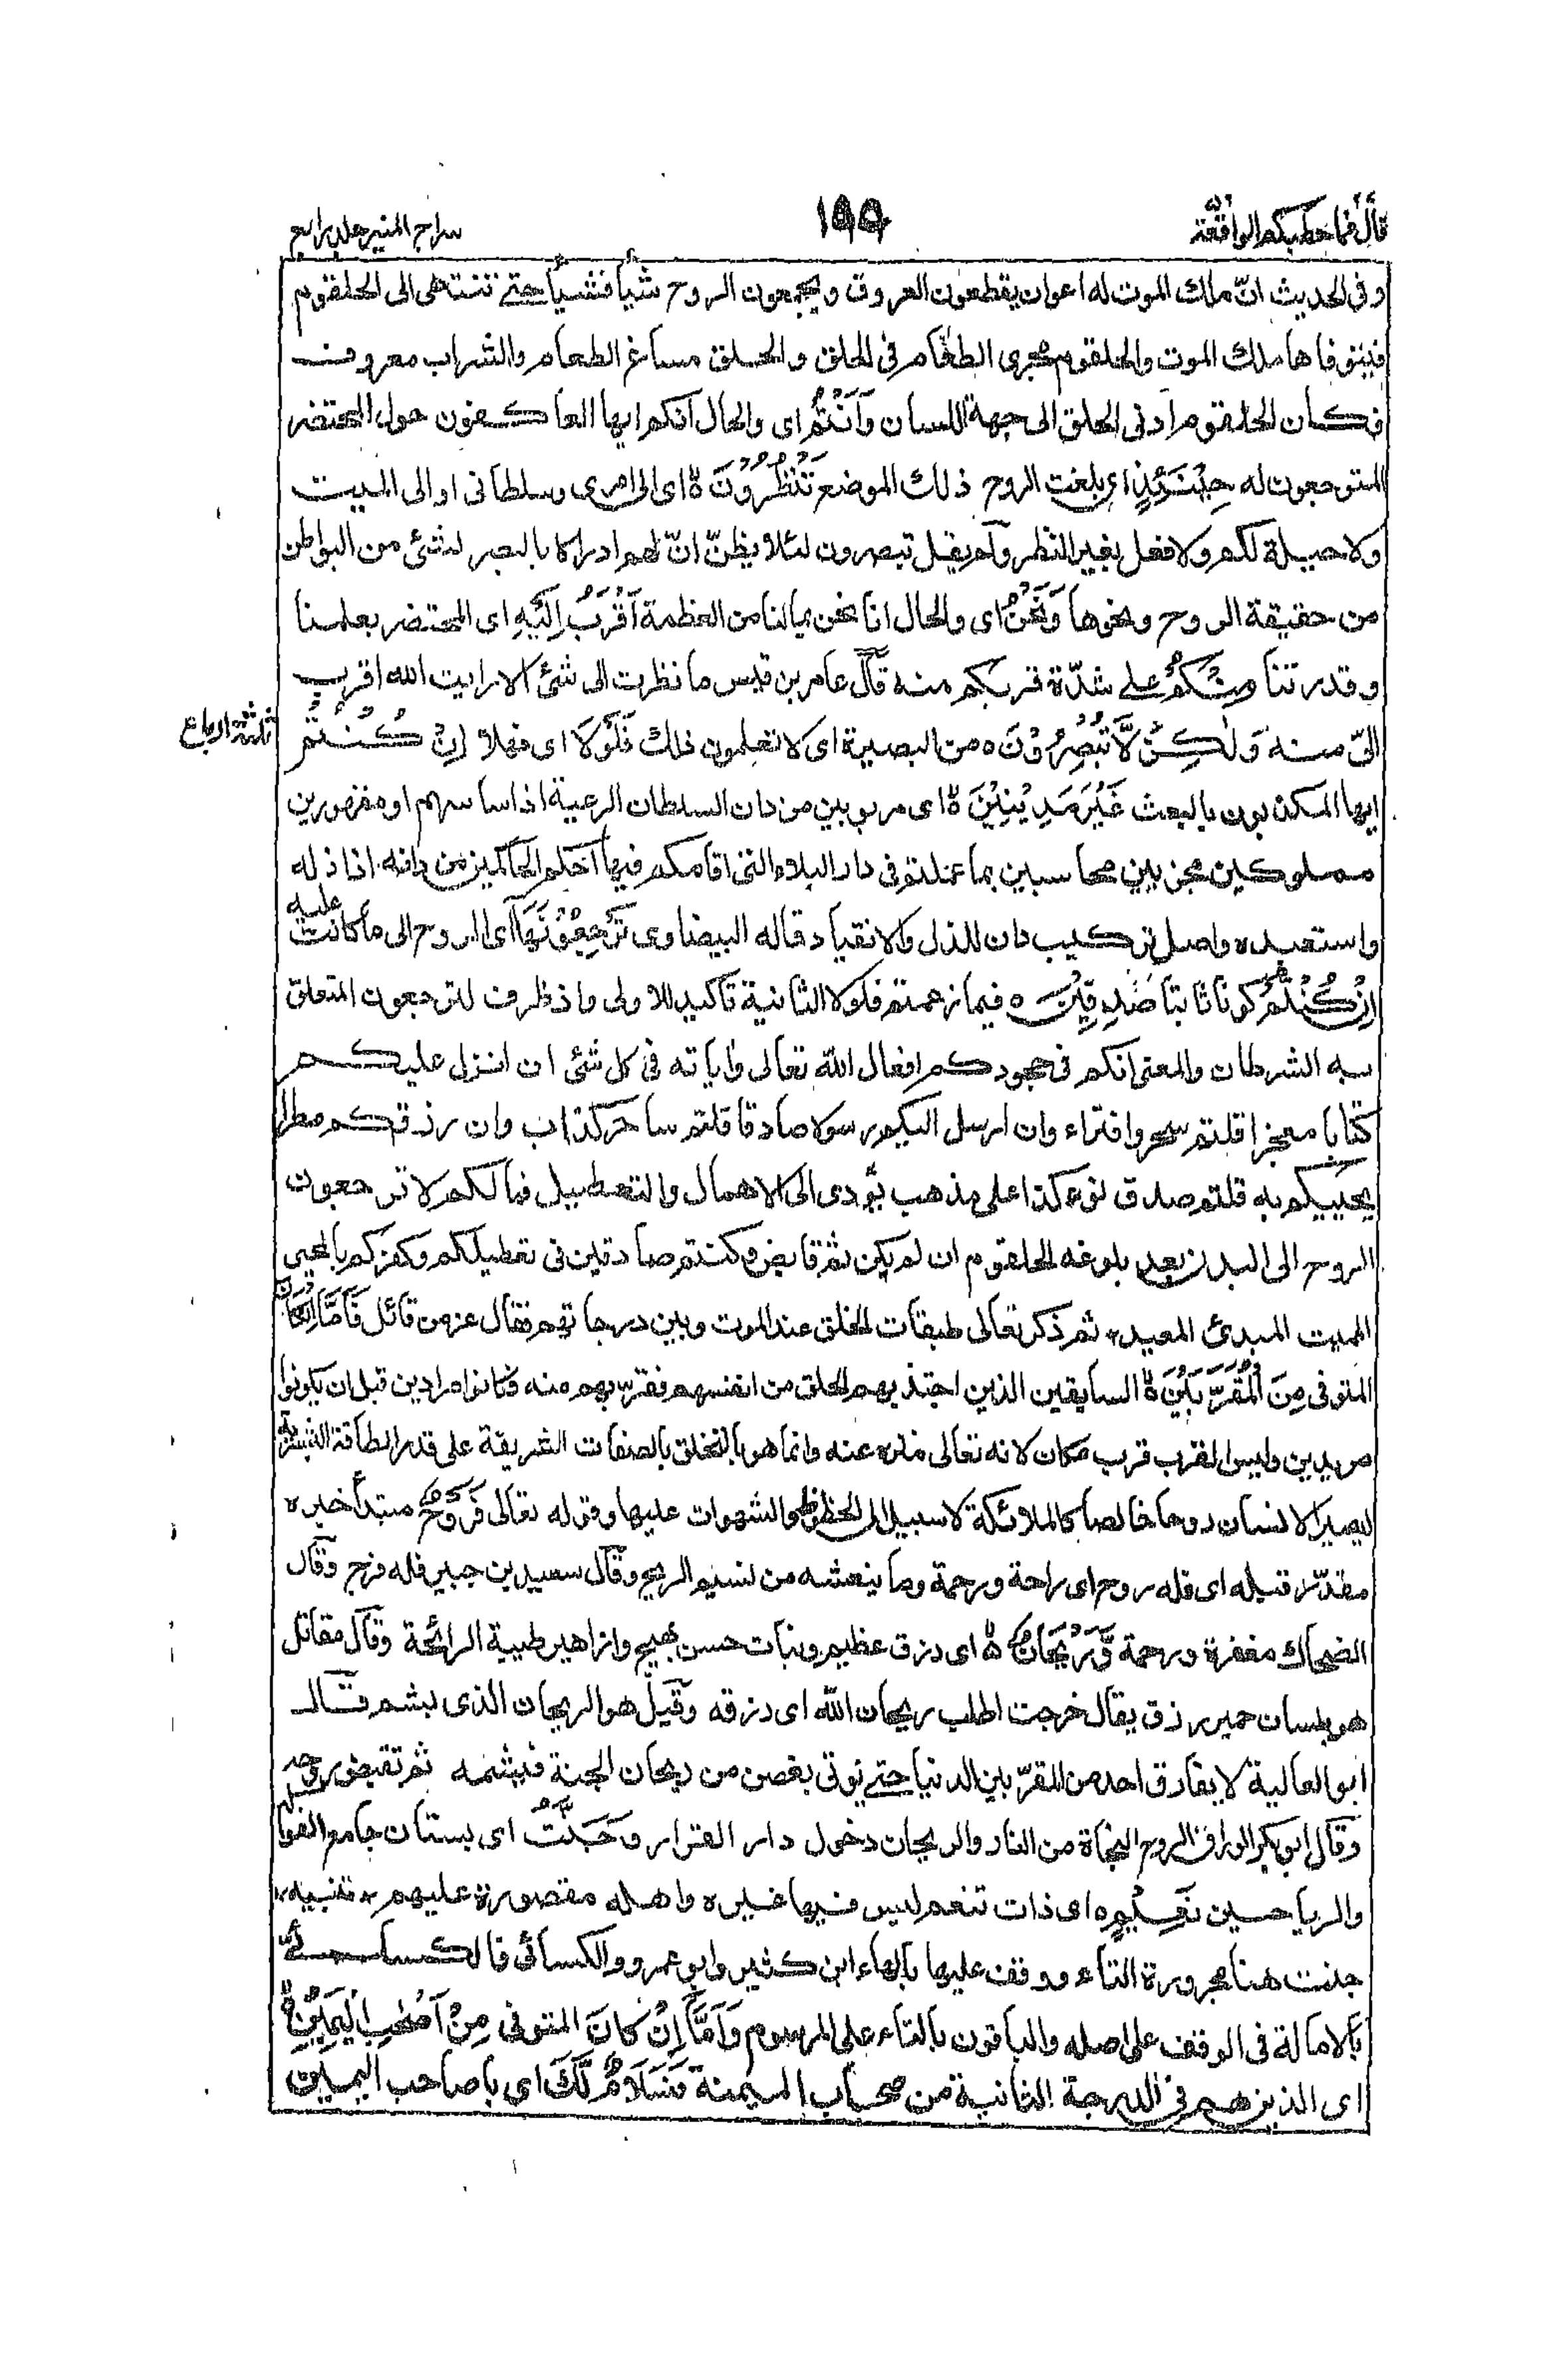 قال فما خطبكم الواقعة
١٩٩
سراج المنير جلد رابع
وفى الحديث انّ ملك الموت له اعوان يقطعون العروق ويجمعون الروح شيأ فشيأ حتى تنتهى الى الحلقوم
فيتوفاها ملك الموت والحلقوم مجرى الطعام فى الحلق والحلق مساغ الطعام والشراب معروف
فكان الحلقوم ادنى الحلق الى جهة اللسان وَاَنْتُمْ اى والحال انكم ايها العاكفون حول المحتضر
المتوجعون له حِيْنَئِذٍ اى بلغت الروح ذلك الموضع تَنْظُرُوْنَ ه اى الى امرى وسلطانى او الى الميت
ولا حيلة لكم ولا فعل بغير النظر ولم يقل تبصرون لئلا يظنّ انّ لهم ادراكا بالبصر لشئ من البواطن
من حقيقة الروح ونحوها وَنَحْنُ اى والحال انا نحن بمالنا من العظمة اَقْرَبُ اِلَيْهِ اى المحتضر بعلمنا
وقدرتنا مِنْكُمْ على شدّة قربكم منه قال عامر بن قيس ما نظرت الى شئ الا رايت الله اقرب
الىّ منه وَلٰكِنْ لَّا تُبْصِرُوْنَ ه من البصيرة اى لا تعلمون ذلك فَلَوْلَا اى فهلا اِنْ كُنْتُمْ
ثلثة ارباع
ايها المكذبون بالبعث غَيْرَ مَدِيْنِيْنَ ه اى مربوبين من دان السلطان الرعية اذا ساسهم او مقهورين
مملوكين مجزيين محاسبين بما عملتم فى دار البلاء التى اقامكم فيها احكم الحاكمين من دانه اذا ذله
واستعبده واصل تركيب دان للذل والانقياد قاله البيضاوى تَرْجِعُوْنَهَا اى الروح الى ما كانت عليه
اِنْ كُنْتُمْ كونا ثابتا صٰدِقِيْنَ ه فيما زعمتم فلولا الثانية تاكيد للاولى واذ ظرف لترجعون المتعلق
به الشرطان والمعنى انكم فى جحودكم افعال الله تعالى واياته فى كل شئ ان انزل عليكم
كتابا معجزا قلتم سحر وافتراء وان ارسل اليكم رسولا صادقا قلتم ساحر كذاب وان رزقكم مطرا
يحييكم به قلتم صدق نوء كذا على مذهب يؤدى الى الاهمال والتعطيل فما لكم لا ترجعون
الروح الى البدن بعد بلوغه الحلقوم ان لم يكن ثم قابض وكنتم صادقين فى تعطيلكم وكفركم بالمحيى
المميت المبدئ المعيد ثم ذكر تعالى طبقات الخلق عند الموت وبين درجاتهم فقال عز من قائل فَاَمَّا اِنْ كَانَ
المتوفى مِنَ الْمُقَرَّبِيْنَ ه السابقين الذين اجتذبهم الحلق من انفسهم فقربهم منه فكانوا مرادين قبل ان يكونوا
مريدين وليس القرب قرب مكان لانه تعالى منزه عنه وانما هو بالتخلق بالصفات الشريفة على قدر الطاقة البشرية
ليصير الانسان روحا خالصا كالملائكة لا سبيل الى الحظوظ والشهوات عليها وقوله تعالى فَرَوْحٌ مبتدأ خبره
مقدّر قبله اى فله روح اى راحة ورحمة وما ينعشه من نسيم الريح وقال سعيد بن جبير فله فرج وقال
الضحاك مغفرة ورحمة وَّرَيْحَانٌ ه اى رزق عظيم ونبات حسن بهيج وازاهير طيبة الرائحة وقال مقاتل
هو بلسان حمير رزق يقال خرجت اطلب ريحان الله اى رزقه وقيل هو الريحان الذى يشم قال
ابو العالية لا يفارق احد من المقرّبين الدنيا حتى يؤتى بغصن من ريحان الجنة فيشمه ثم تقبض روحه
وقال ابو بكر الوراق الروح النجاة من النار والريحان دخول دار القرار وَجَنَّتُ اى بستان جامع الفواكه
والرياحين نَعِيْمٍ ه اى ذات تنعم ليس فيها غيره واهله مقصورة عليهم * تنبيه *
جنت هنا مجرورة التاء ووقف عليها بالهاء ابن كثير وابو عمرو والكسائى فالكسائىّ
بالامالة فى الوقف على اصله والباقون بالتاء على المرسوم وَاَمَّا اِنْ كَانَ المتوفى مِنْ اَصْحٰبِ الْيَمِيْنِ ه
اى الذين هم فى الدرجة الثانية من صحاب الميمنة فَسَلَامٌ لَّكَ اى يا صاحب اليمين